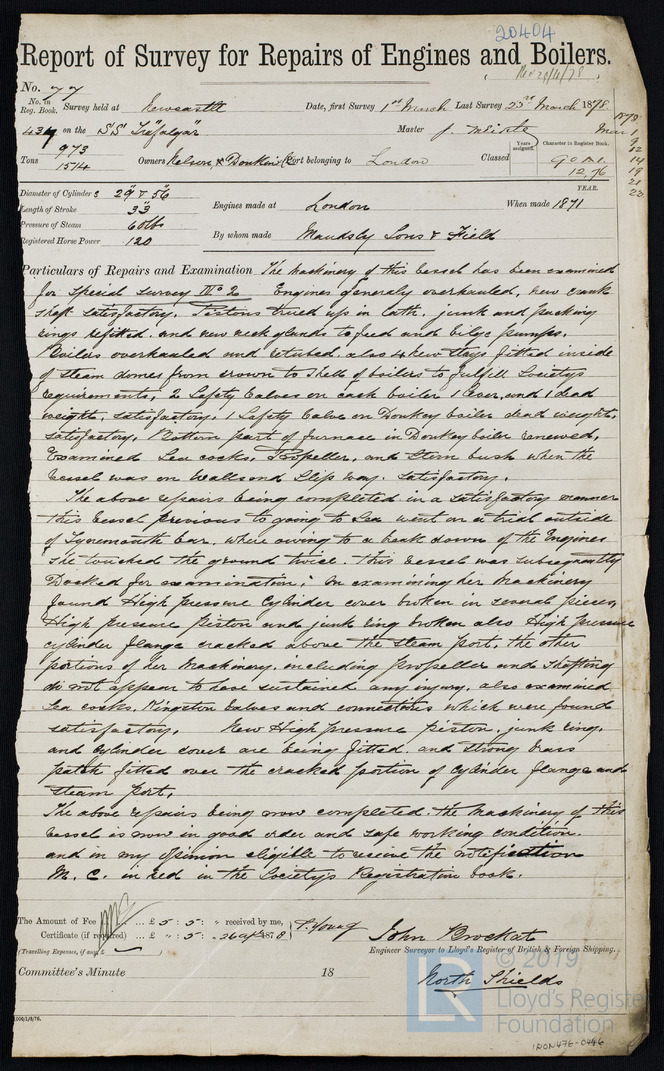 20404
Report of Survey for Repairs of Engines and Boilers.
No. 77
No. in Reg. Book. Survey held at Newcastle Date, first Survey 1st March Last Survey 23rd March 1878.
434 on the SS "Trafalgar" Master J.
1878
Mar 1
9
12
14
19
21
23
Tons 973
1514
Owners Nelson, & Donkin &Co Port belonging to London Classed Years assigned. Character in Register Book.
90 A.1.
12,76
Diameter of Cylinders 29" & 56" YEAR.
Length of Stroke 33" Engines made at London When made 1871
Pressure of Steam 60lbs
Registered Horse Power 120 By whom made Maudsley Sons & Field
Particulars of Repairs and Examination The machinery of this vessel has been examined
for special survey No 2 Engines generally overhauled, new crank
shaft satisfactory. Pistons trued up in lath, junk and packing
rings refitted. and new neck glands to feed and bilge pumps.
Boilers overhauled and retubed. also 4 new stays fitted inside
of steam domes from crown to shells of boilers to fulfill Society's
requirements, 2 Safety Valves on each boiler 1 lever, and 1 dead
weight, satisfactory. 1 Safety Valve on Donkey boiler dead weight.
satisfactory. Bottom part of furnace in Donkey boiler renewed.
Examined Sea cocks. Propeller, and Stern bush when the
vessel was on Wallsend Slip way. satisfactory.
The above repairs being completed in a satisfactory manner
this vessel previous to going to Sea went on a trial outside
of Tynemouth bar. where owing to a break down of the Engines
she touched the ground twice. this vessel was subsequently
Docked for examination. On examining her machinery
found High pressure Cylinder cover broken in several pieces,
High pressure piston and junk ring broken also High pressure
cylinder flange cracked above the steam port. the other
portions of her machinery, including propeller and shafting
do not appear to have sustained any injury. also examined
Sea cocks, Kingston Valves and connections, which were found
satisfactory. New High pressure piston, junk ring,
and cylinder cover are being fitted. and strong brass
patch fitted over the cracked portion of cylinder flange and
steam port.
The above repairs being now completed. the machinery of this
vessel is now in good order and safe working condition.
and in my opinion eligible to receive the notification
M. C. in red in the Society's Registration book.
The Amount of Fee ... £ 5 : 5 : " received by me,
Certificate (if required) ... £ " : 5 : " 26 Apl 1878 T. Young
(Travelling Expenses, if any, £ )
John Brockat
Engineer Surveyor to Lloyd's Register of British & Foreign Shipping.
Committee's Minute 18
North Shields
© 2019
Lloyd's Register
Foundation
LR
IRON476-0446